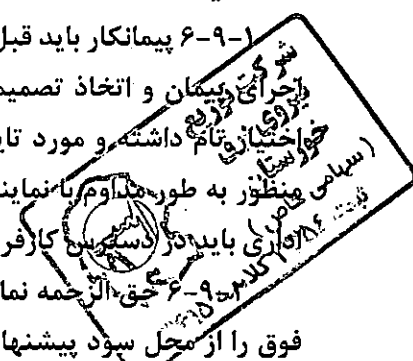 ۶-۹-۱ پیمانکار باید قبل
اجرای پیمان و اتخاذ تصمیم
اختیار تام داشته و مورد تای
منظور به طور مداوم با نماین
اداری باید در دسترس کارفر
۶-۹-۲ حق الزحمه نما
فوق را از محل سود پیشنها
شرکت توزیع
نیروی برق
خوزستان
(سهامی خاص)